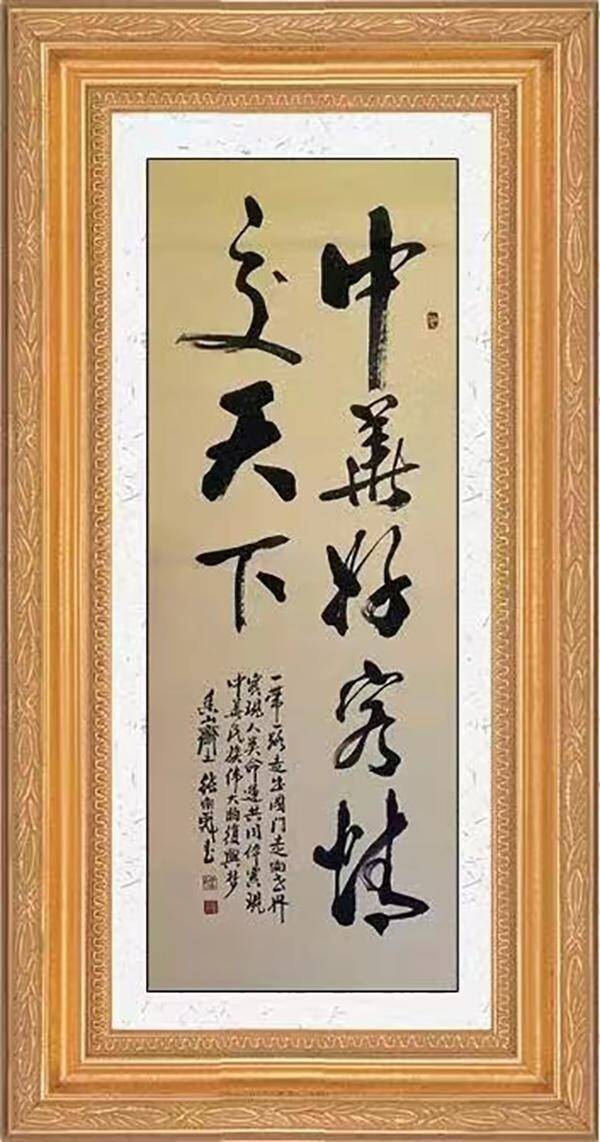 中華好客情
交天下
一带一路走出國门走向世界
实现人类命运共同体实现
中華民族伟大的復興梦